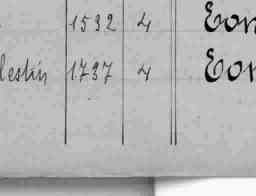 1532 4 Con
lestin 1737 4 Con